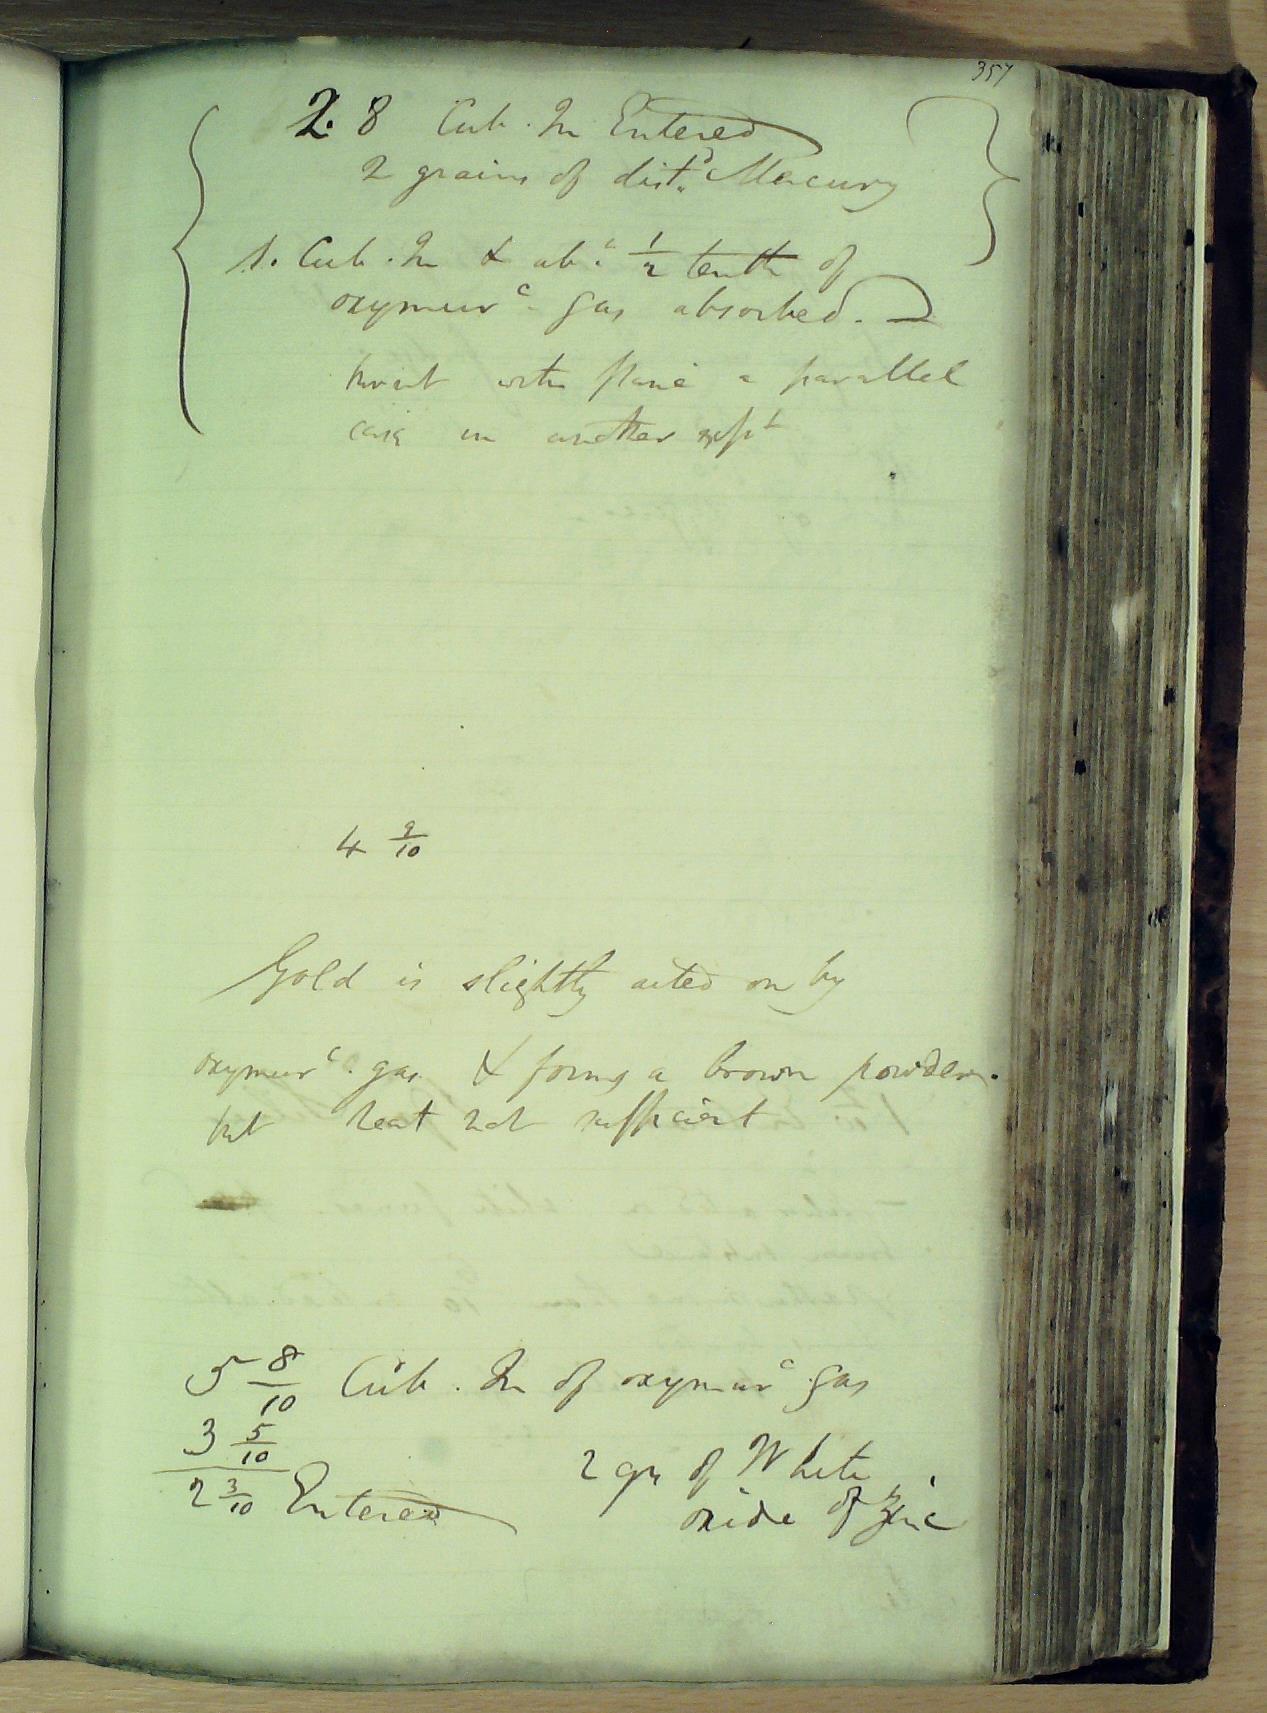 357
2. 8 Cub. In Entered
2 grains of dist.d Mercury
1. Cub. In & ab.t 1/2 tenth of
oxymurc. gas absorbed.
burnt with flame a parallel
case in another expt
4 9/10
Gold is slightly acted on by
oxymurc. gas & forms a brown powder.
but heat not sufficient
5 8/10 Cub. In of oxymurc gas
3 5/10
2 grs of White
2 3/10 Entered
oxide of zinc